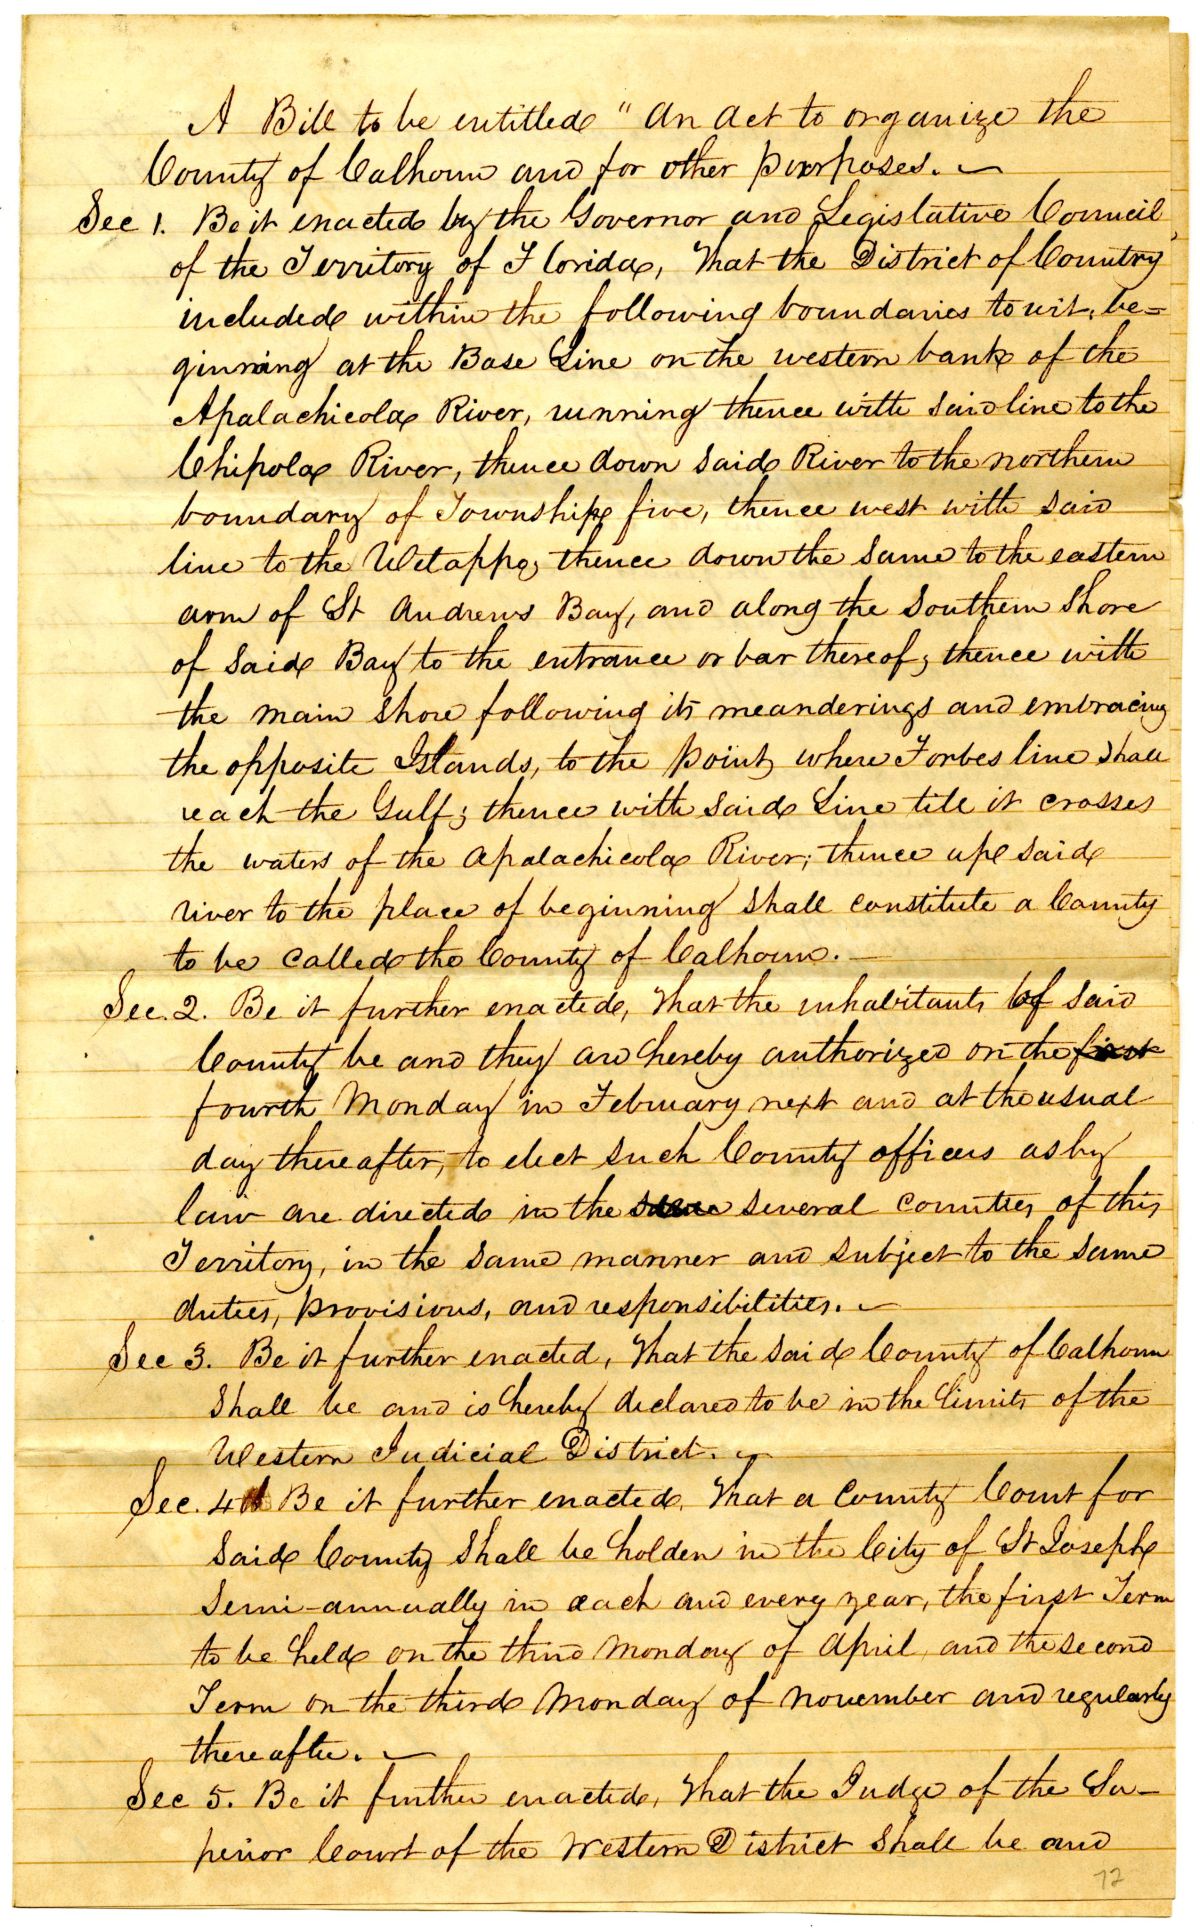 A Bill to be entitled "An Act to organize the
County of Calhoun and for other purposes.
Sec 1. Be it enacted by the Governor and Legislative Council
of the Territory of Florida, That the District of Country
included within the following boundaries to wit, be=
ginning at the Base Line on the western bank of the
Apalachicola River, running thence with said line to the
Chipola River, thence down said River to the northern
boundary of Township five, thence west with said
line to the Wetappo, thence down the same to the eastern
arm of St Andrews Bay, and along the Southern Shore
of said Bay to the entrance or bar thereof, thence with
the main shore following its meanderings and embracing
the opposite Islands, to the point, where Forbes line shall
reach the Gulf; thence with said Line till it crosses
the waters of the Apalachicola River; thence up said
river to the place of beginning shall constitute a County
to be called the County of Calhoun.
Sec. 2. Be it further enacted, That the inhabitants of said
County be and they are hereby authorized on the first
fourth Monday in February next and at the usual
day thereafter, to elect such County officers as by
law are directed in the same several counties of this
Territory, in the same manner and subject to the same
duties, provisions, and responsibilities.
Sec 3. Be it further enacted, That the said County of Calhoun
shall be and is hereby declared to be in the limits of the
Western Judicial District.
Sec. 4 Be it further enacted, That a County Court for
said County shall be holden in the City of St Joseph
semi-annually in each and every year, the first Term
to be held on the third Monday of April, and the second
Term on the third Monday of November and regularly
thereafter.
Sec 5. Be it further enacted, That the Judge of the Su-
perior Court of the Western District shall be and
72